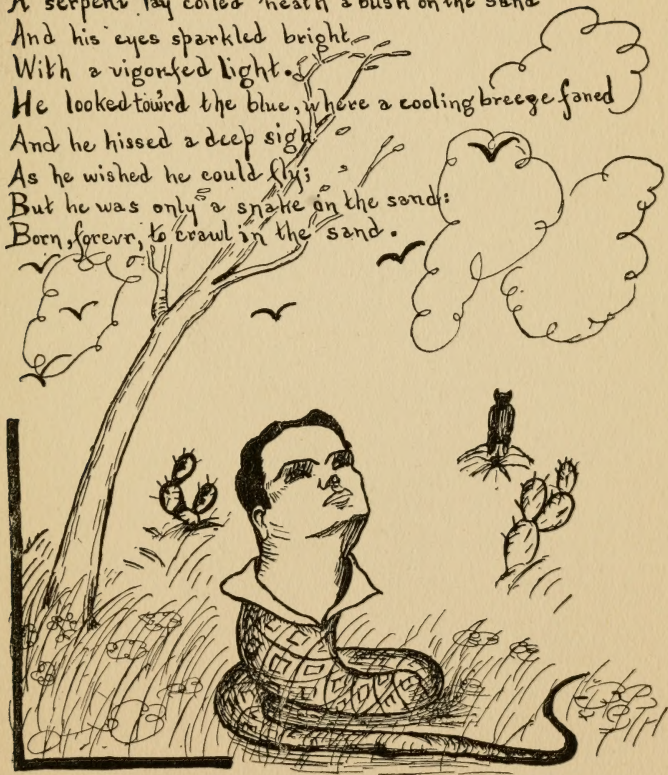 A serpent lay coiled 'neath a bush on the sand
And his eyes sparkled bright
With a vigorfed light.
He looked tow'rd the blue, where a cooling breeze faned
And he hissed a deep sigh
As he wished he could fly;
But he was only a snake on the sand:
Born, forevr, to crawl in the sand.